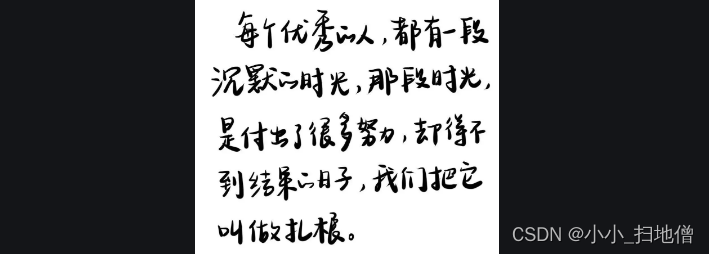 每个优秀的人，都有一段
沉默的时光，那段时光，
是付出了很多努力，却得不
到结果的日子，我们把它
叫做扎根。
CSDN @小小_扫地僧